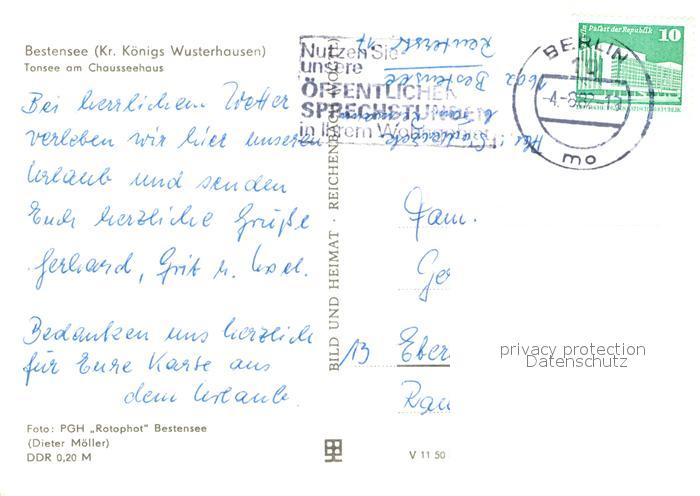 Bestensee (Kr. Königs Wusterhausen)
Tonsee am Chausseehaus
Bei herrlichem Wetter
verleben wir hier unseren
Urlaub und senden
Euch herzliche Grüße
Gerhard, Grit u. Axel.
Bedanken uns herzlich
für Eure Karte aus
dem Urlaub.
Foto: PGH „Rotophot" Bestensee
(Dieter Möller)
DDR 0,20 M
BILD UND HEIMAT · REICHENBACH
Nutzen Sie
unsere
ÖFFENTLICHEN
SPRECHSTUNDEN
in Ihrem
Bestensee
Palast der Republik 10
BERLIN
mo
Fam.
Ger
13 Eber
Rau
privacy protection
Datenschutz
V 11 50